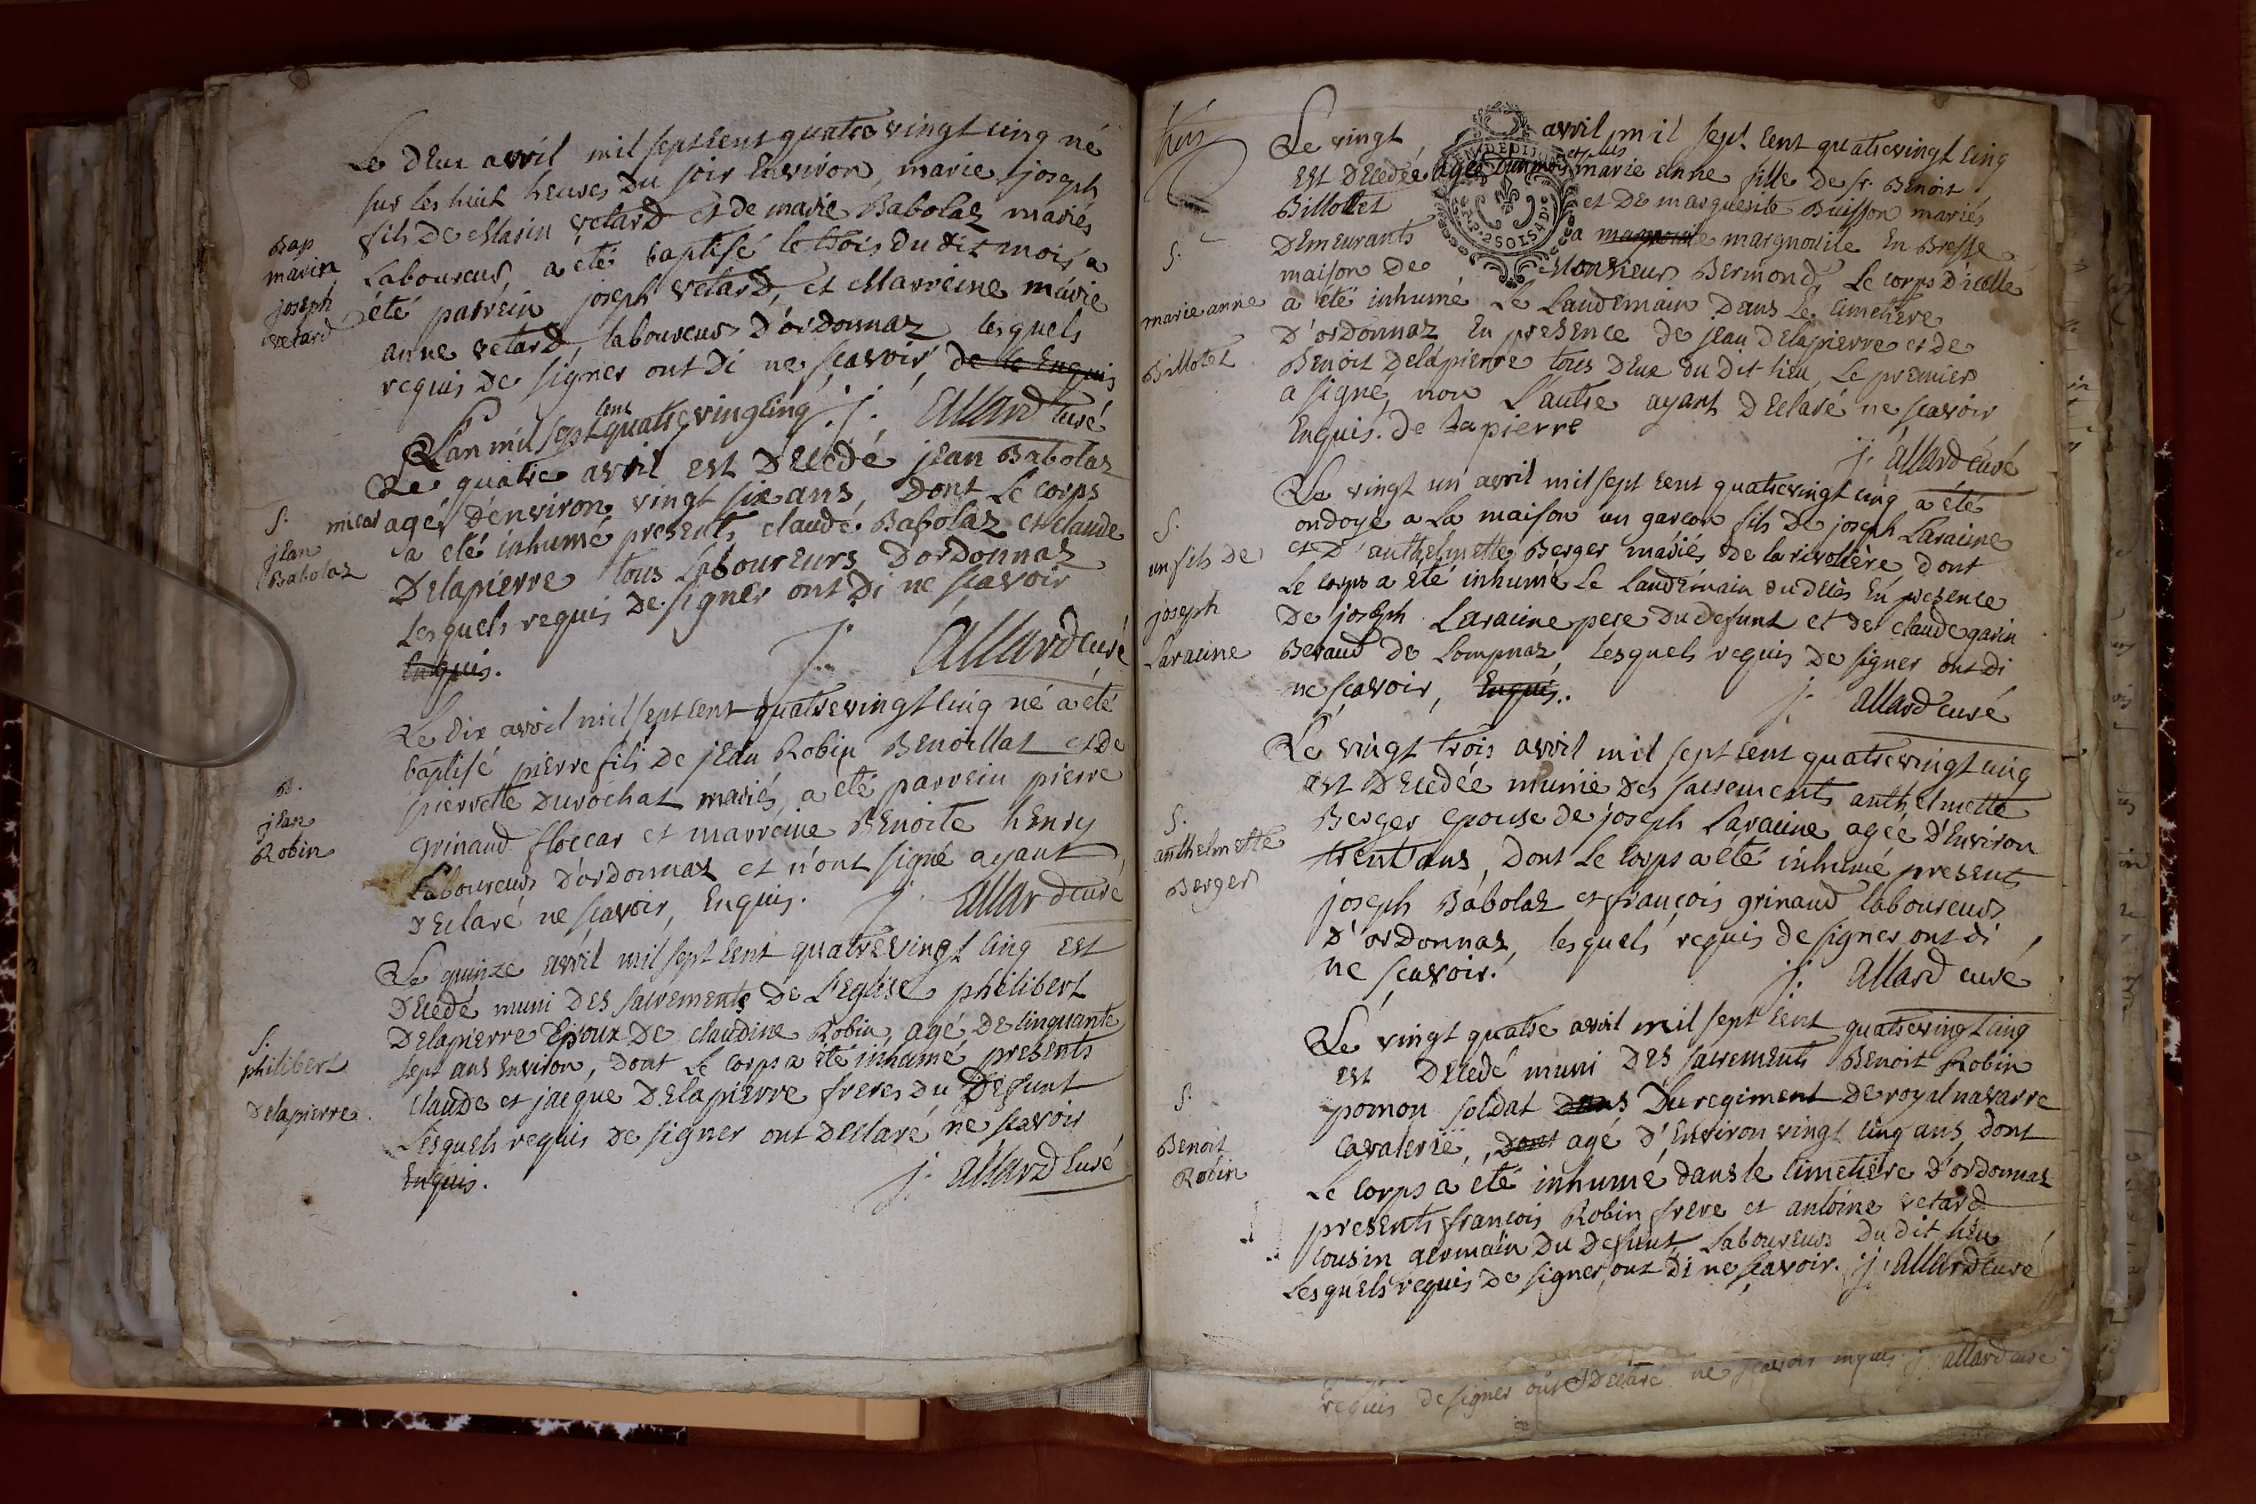 Le deux avril mil sept cent quatre vingt cinq né
sur les huit heures du soir environ, marie joseph
fils de Marin vetard et de marie Babolaz mariés
Bap
marin
joseph
vetard
Laboureur, a été baptisé le trois du dit mois a
été parrein joseph vetard, et Marreine marie
anne vetard, laboureurs d'ordonnaz lesquels
requis de signer ont di ne scavoir, de ce Enquis
L'an mil sept cent quatre vingt cinq j. allard curé
Le quatre avril est décédé jean Babolaz
S.
jean
Babolaz
micat agé d'environ vingt six ans, dont le corps
a été inhumé presents claude Babolaz et claude
Delapierre tous Laboureurs D'ordonnaz
Lesquels requis de signer ont di ne scavoir
Enquis. j. allard curé
Le dix avril mil sept cent quatre vingt cinq né a été
baptisé pierre fils de jean Robin Benoillat et de
pierrette Durochat mariés, a été parrein pierre
B.
jean
Robin
grinand floccar et marreine Benoite henry
Laboureurs d'ordonnaz et n'ont signé ayant
déclaré ne scavoir, Enquis. j. allard curé
Le quinze avril mil sept cent quatre vingt cinq est
décédé muni des sacrements de L'eglise philibert
S.
philibert
Delapierre
Delapierre Epoux de claudine Robin, agé de cinquante
sept ans environ, dont le corps a été inhumé, presents
claude et jacque Delapierre freres du Défunt
Lesquels requis de signer ont déclaré ne scavoir
Enquis. j. allard curé
Le vingt avril mil sept cent quatre vingt cinq
est décédée agée d'un mois et plus marie anne fille de sr. Benoit
Billottet et de marguerite Buisson mariés
S.
marie anne
Billotet
Demeurants a margnoulle margnoulle En Bresse
maison de Monsieur Bermond, Le corps d'icelle
a été inhumé Le Landemain dans Le cimetiere
D'ordonnaz En presence de jean Delapierre et de
Benoit Delapierre tous deux du dit lieu, Le premier
a signé, non L'autre ayant déclaré ne scavoir
Enquis. De La pierre
j. allard curé
Le vingt un avril mil sept cent quatre vingt cinq a été
S.
un fils de
joseph
Laracine
ondoyé a La maison un garcon fils de joseph Laracine
et d'anthelmette Berger mariés de la rivoliere dont
Le corps a été inhumé Le Landemain du décès En presence
De joseph Laracine pere du defunt et de claude garin
Beraud de Lompnaz, Lesquels requis de signer ont di
ne scavoir, Enquis.
j. allard curé
Le vingt trois avril mil sept cent quatre vingt cinq
est décédée munie des sacrements anthelmette
S.
anthelmette
Berger
Berger epouse de joseph Laracine agée d'Environ
trent ans, dont Le corps a été inhumé, presents
joseph Babolaz et françois grinand laboureurs
d'ordonnaz, lesquels requis de signer ont di
ne scavoir. j. allard curé
Le vingt quatre avril mil sept cent quatre vingt cinq
est décédé muni des sacrements Benoit Robin
S.
Benoit
Robin
pomon soldat dans Du regiment de royal navarre
Cavalerie, dont agé d'Environ vingt cinq ans, dont
Le corps a été inhumé dans le cimetiere d'ordonnaz
presents françois Robin frere et antoine vetard
cousin germain du defunt, Laboureurs du dit lieu
Lesquels requis de signer, ont di ne scavoir. j. allard curé
requis de signer ont déclaré ne scavoir enquis j. allard curé